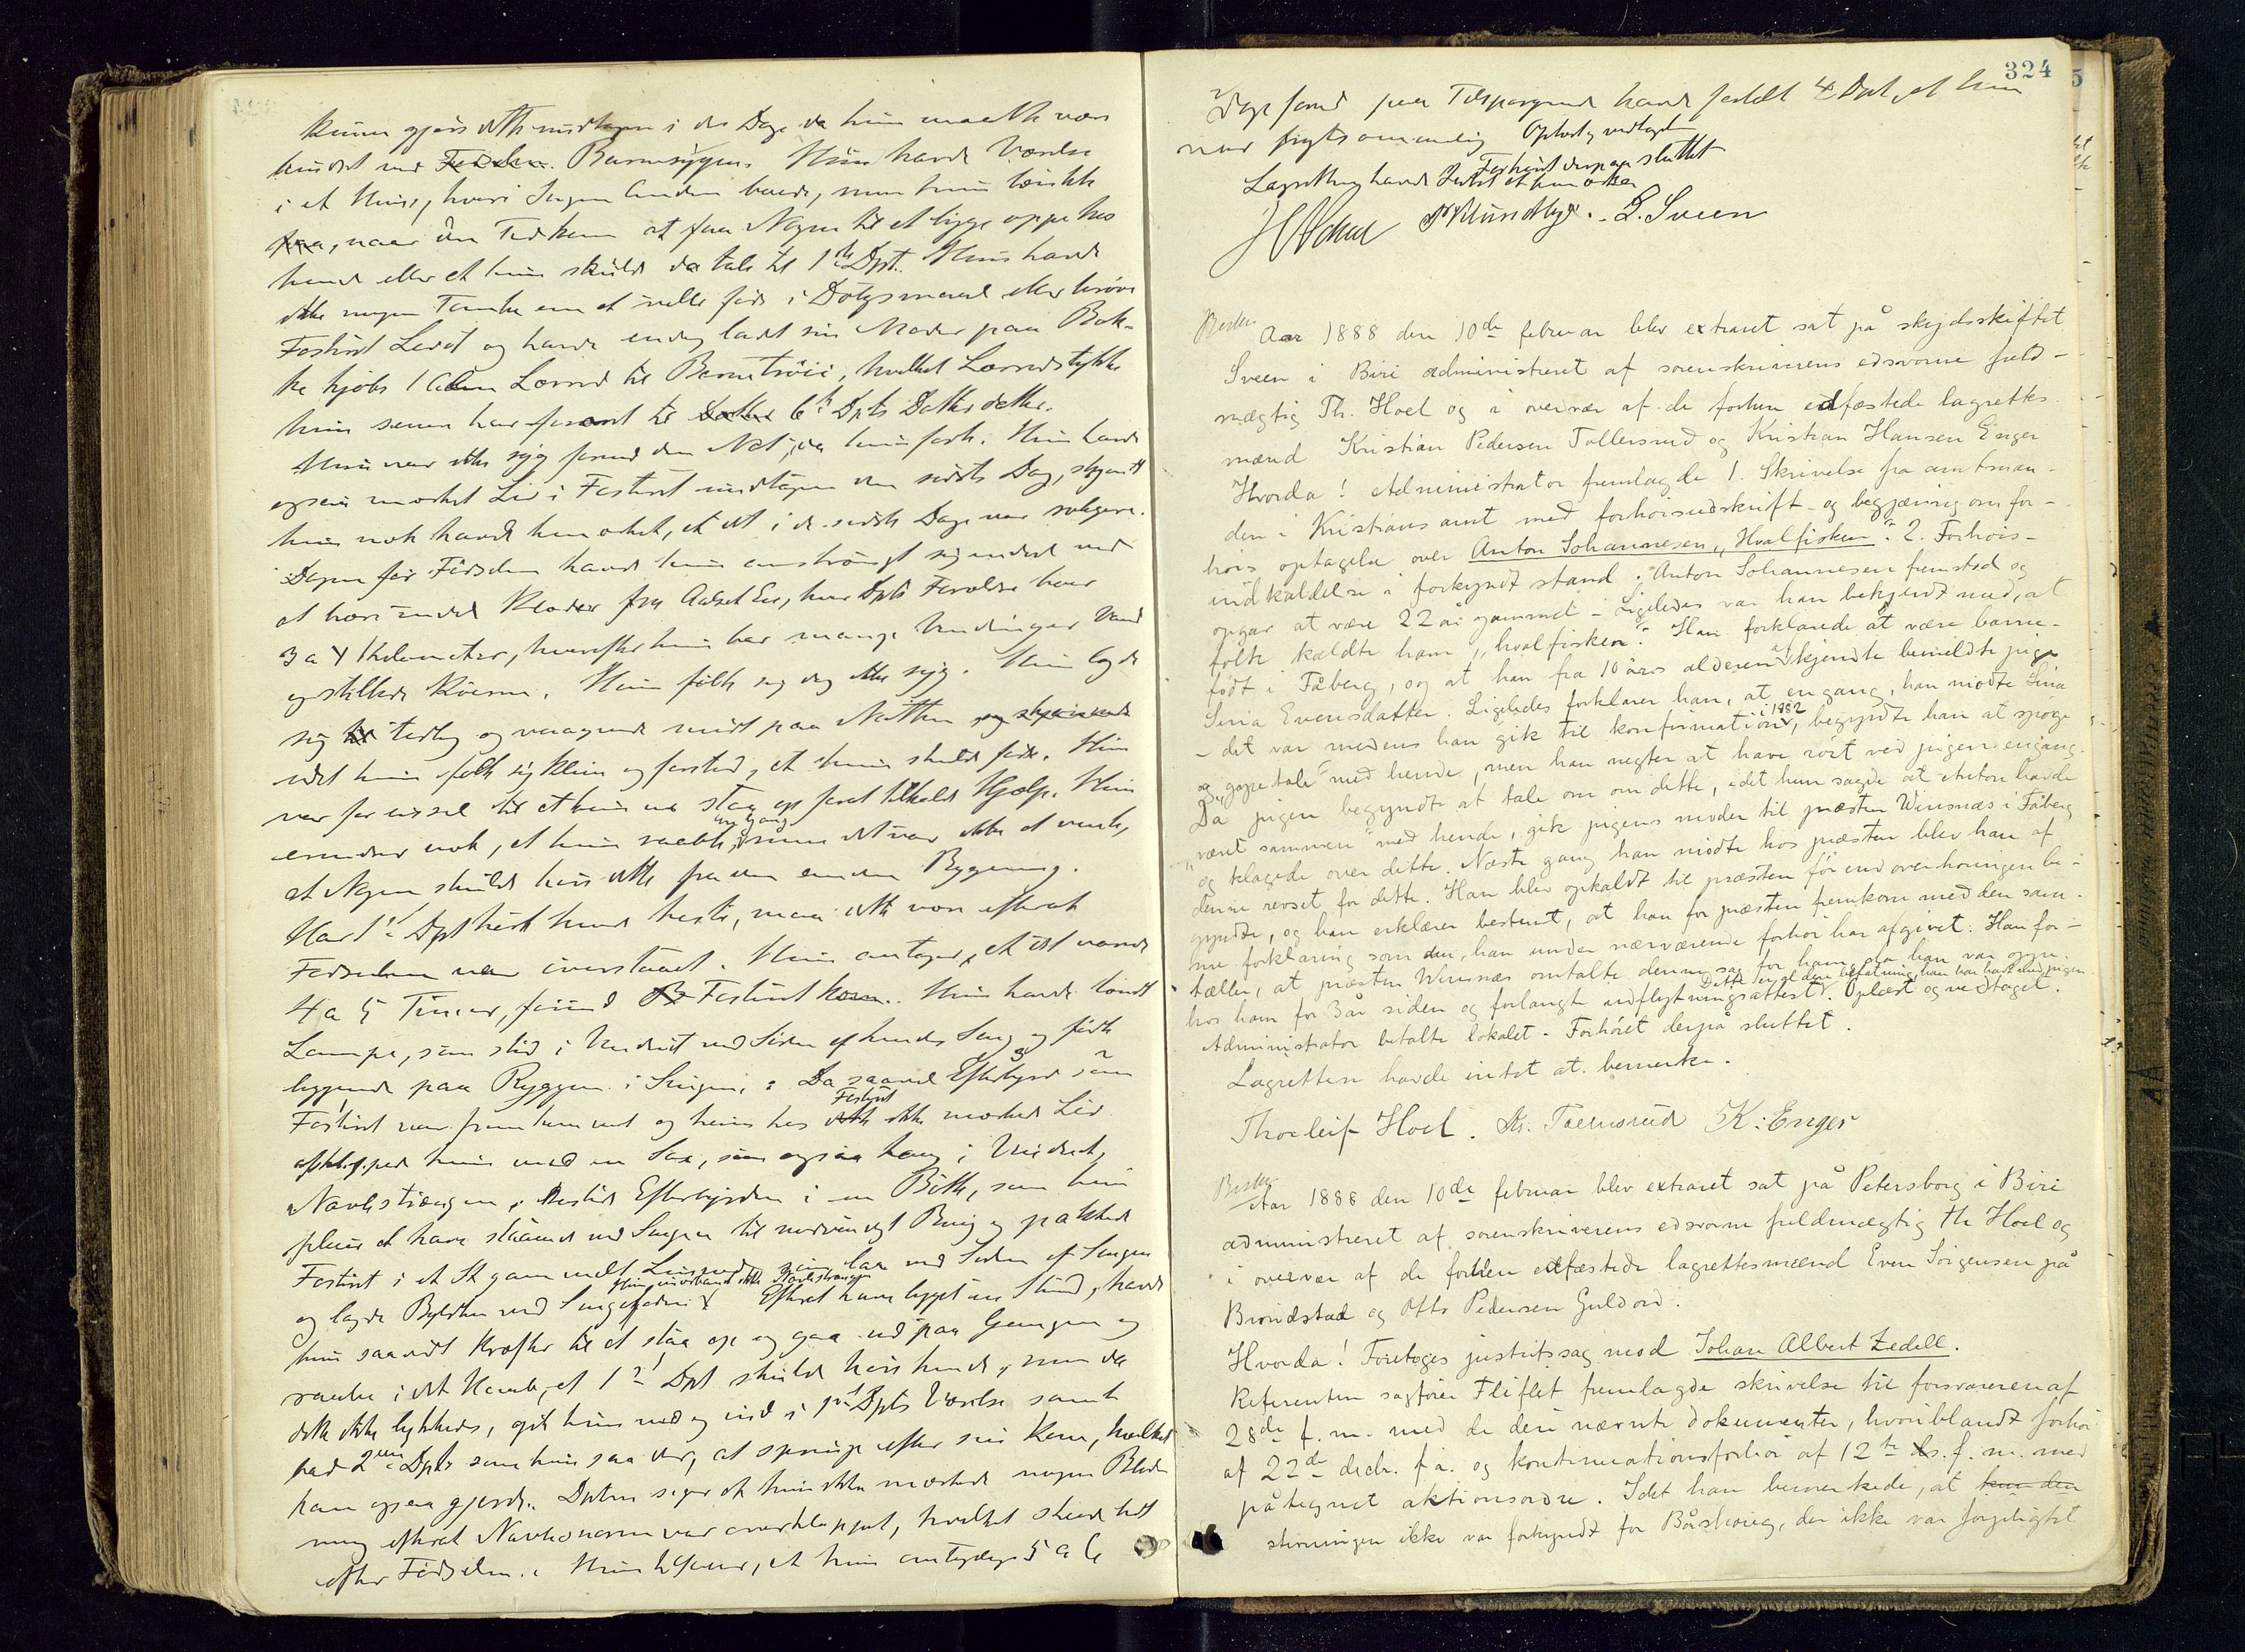 kunne gjøre dette mod i de Dage da hun maatte være
hindret ved Barnesygen. Hun havde Værelse
i et Huus, hvori Ingen Anden boede, men hun tænkte
paa, naar den Tid kom at faa Nogen til at ligge oppe hos
hende eller at hun skulde da tale til 1ste Dpt. Hun havde
ikke nogen Tanke om at ville føde i Dølgsmaal eller berøve
Fostret Livet og havde endog ladt sin Moder paa
kjøbe 1 Alen Lærred til Barnetrøie, hvilket Lærredstykke
hun senere har foræret til 6te Dpts Datter dette.
Hun var ikke syg forud den Nat, da hun fødte. Hun havde
ogsaa mærket Liv i Fostret indtagen den sidste Dag, skjønt
hun nok havde bemærket, at det i de sidste Dage var roligere.
Dagen før Fødselen havde hun anstrængt sig endel ved
at bære endel Klæder fra, hvor Dpts Forældre boer
3 a 4 Kilometer, hvorefter hun bar mange Vendinger Vand
og stellede Køerne. Hun følte sig dog ikke syg. Hun lagde
sig tidlig og vaagnede midt paa Natten
idet hun følte sig klein og forstod, at hun skulde føde. Hun
var for ussel til at hun da stod op for at tilkalde Hjælp. Hun
erindrer nok, at hun raabte en Gang, men det var ikke at vente,
at Nogen skulde høre dette fra den anden Bygning.
Har 1ste Dpt hørt hende hoste, maa dette være efterat
Fødselen var overstaaet. Hun antager, at det varede
4 a 5 Timer, forend Fostret kom. Hun havde tændt
Lampe, som stod i Vinduet ved Siden af hendes Seng og fødte
liggende paa Ryggen i Sengen. Da saavel Efterbyrd som
Fostret var fremkommet og hun hos Fostret ikke mærkede Liv
afklippede hun med en Sax, som ogsaa hang i Vinduet,
Navlestrængen, Efterbyrden i en Bøtte, som hun
pleier at have staaende ved Sengen til nødvendigt Brug og pakkede
Fostret i et St gammelt laa ved Siden af Sengen
og lagde Bylten ved Sengefoden. Hun underbandt ikke Navlestrængen Efterat have ligget en Stund, havde
hun saavidt Kræfter til at staa op og gaa ud paa Gangen og
raabe i det Haab, at 1ste Dpt skulde høre hende, men da
dette ikke lykkedes, gik hun ned og ind i 1ste Dpts Værelse samt
bad 2den Dpt som hun saa der, at springe efter sin Kone, hvilket
han ogsaa gjorde. Dptn siger at hun ikke mærkede nogen Blød-
ning efterat Navlesnoren var overklippet, hvilket skede tidt
efter Fødselen. Hun, at hun antagelig 5 a 6
324
Dage forud paa Tilspørgende havde fortalt 4de Dpt, at hun
var frugtsommelig Oplæst, vedtaget
Forhøret derpaa sluttet
Lagretten havde Intet at bemærke
E. Sveen
Aar 1888 den 10de februar blev extraret sat på skydsskiftet
Sveen i Biri administreret af sorenskriverens edsvorne fuld-
mægtig Th. Hoel og i overvær af de forhen edfæstede lagrettes
mænd Kristian Pedersen Tollersrud og Kristian Hansen Enger
Hvorda! Administrator fremlagde 1. Skrivelse fra amtman-
den i Kristians amt med forhørsudskrift og begjæring om for-
hørs optagelse over Anton Johannesen „Hvalfisken“. 2. Forhørs-
indkaldelse i forkyndt stand. Anton Johannesen fremstod og
opgav at være 22 år gammel – Ligeledes var han bekjendt med, at
folk kaldte ham „hvalfisken“. Han forklarede at være barne-
født i Fåberg, og at han fra 10 års alderen af kjendte bemeldte pige
Sina Evensdatter. Ligeledes forklarer han, at engang, han mødte Sina
– det var medens han gik til konfirmation i 1882, begyndte han at spøge
og „gapetale“ med hende, men han negter at have rørt ved pigen engang.
Da pigen begyndte at tale om om dette, idet hun sagde at Anton havde
„været sammen“ med hende, gik pigens moder til præsten Winsnæs i Fåberg
og klagede over dette. Næste gang han mødte hos præsten blev han af
denne revset for dette. Han blev opkaldt til præsten før end overhøringen be-
gyndte, og han erklærer bestemt, at han for præsten fremkom med den sam-
me forklaring som den, han under nærværende forhør har afgivet. Han for-
tæller, at præsten Winsnæs omtalte denne sag for ham, da han var oppe
hos ham for 3 år siden og forlangte udflytningsattest. Dette er al den befatning, han har havt med pigen. Oplæst og vedtaget.
Administrator betalte lokalet. Forhöret derpå sluttet.
Lagretten havde intet at bemerke.
Thorleif Hoel. Kr. Tollersrud K: Enger
Aar 1888 den 10de februar blev extraret sat på Petersborg i Biri
administreret af sorenskriverens edsvorne fuldmægtig Th Hoel og
i overvær af de forhen edfæstede lagrettesmænd Even Sörgensen på
Bröndstad og Otto Pedersen Guldord.
Hvorda! Foretoges justitssag mod Johan Albert Zedell.
Referenten sagfører Fliflet fremlagde skrivelse til forsvareren af
28de f. m. med de deri nævnte dokumenter, hvoriblandt forhør
af 22de decbr. f. å. og kontinuationsforhør af 12te f. m. med
påtegnet aktionsordre. Idet han bemerkede, at
stevningen ikke var forkyndt for Båshoug, der ikke var forpligtet